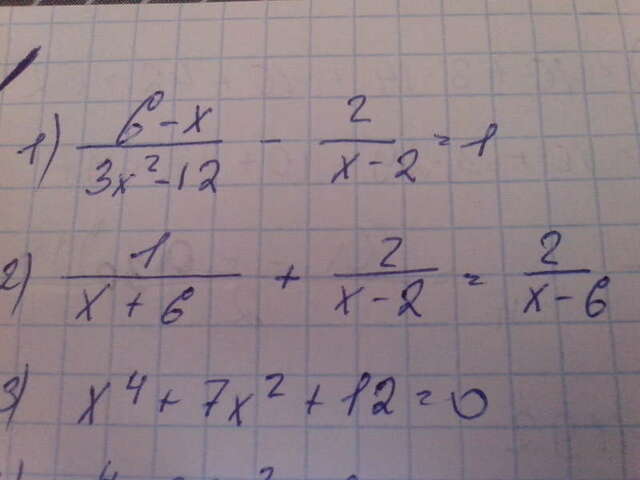 1) (6-x)/(3x²-12) - 2/(x-2) = 1
2) 1/(x+6) + 2/(x-2) = 2/(x-6)
3) x⁴ + 7x² + 12 = 0